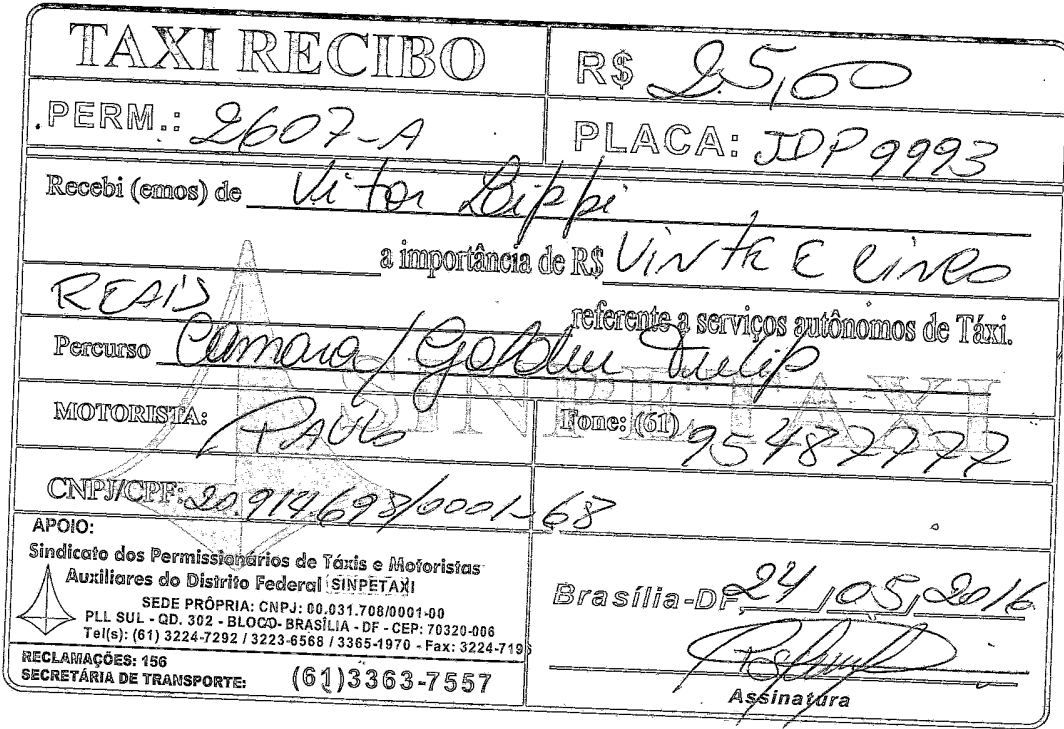 TAXI RECIBO
R$ 25,00
PERM.: 2607-A
PLACA: JDP 9993
Recebi (emos) de Vitor Lippi
a importância de R$ Vinte e cinco
REAIS
referente a serviços autônomos de Táxi.
Percurso Camara / Golden Tulip
SINPETAXI
MOTORISTA: PAULO
Fone: (61) 95487777
CNPJ/CPF: 20.914.698/0001-68
APOIO:
Sindicato dos Permissionários de Táxis e Motoristas
Auxiliares do Distrito Federal (SINPETAXI
SEDE PRÓPRIA: CNPJ: 00.031.708/0001-00
PLL SUL - QD. 302 - BLOCO- BRASÍLIA - DF - CEP: 70320-006
Tel(s): (61) 3224-7292 / 3223-6568 / 3365-1970 - Fax: 3224-719
RECLAMAÇÕES: 156
SECRETÁRIA DE TRANSPORTE: (61)3363-7557
Brasília-DF 24 / 05 / 2016
Assinatura